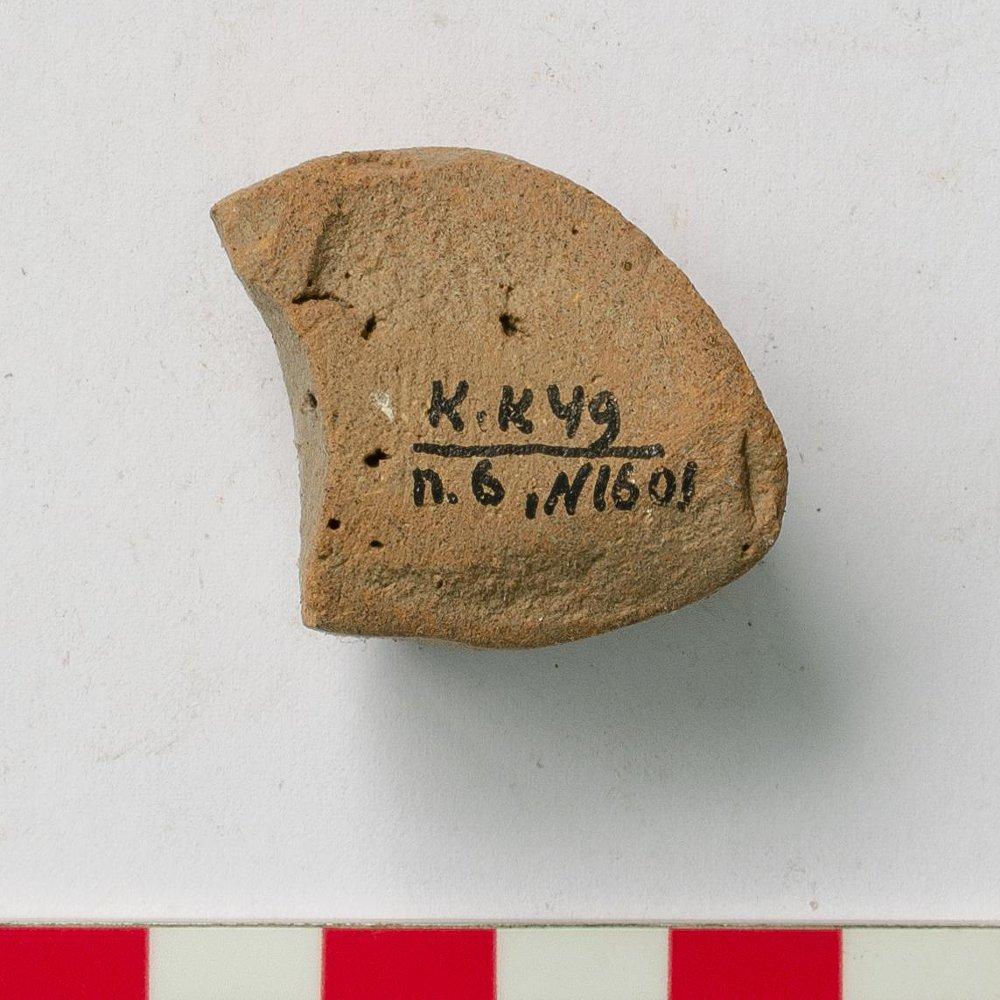 К.К49
п.6, N1601